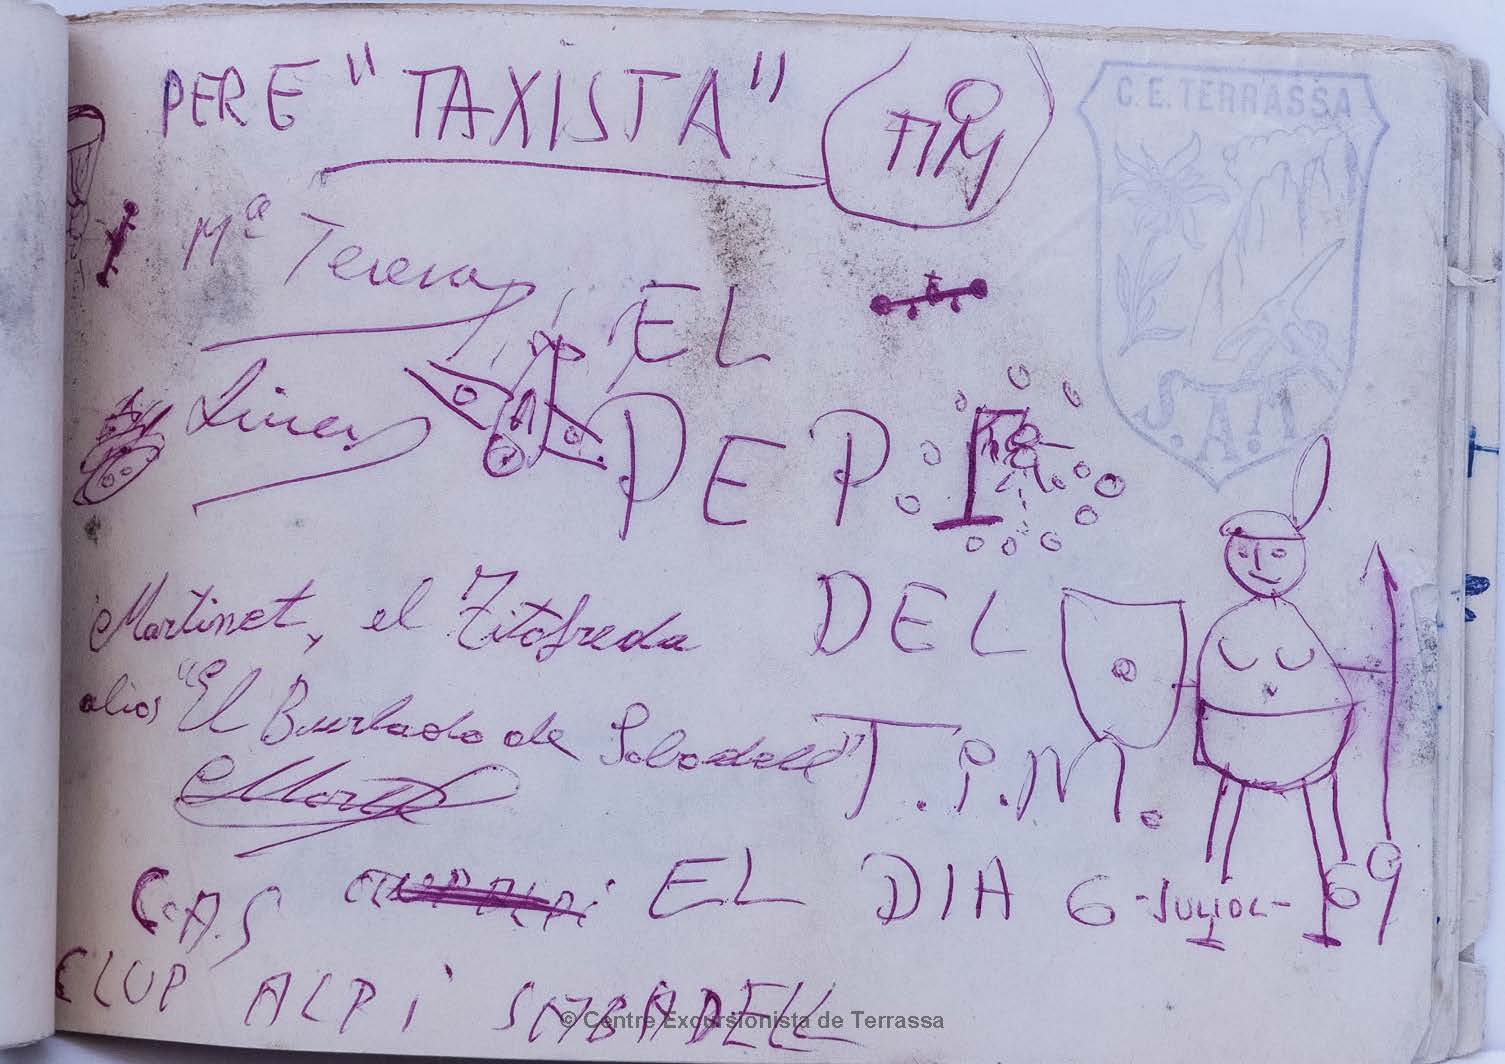 PERE "TAXISTA"
TIM
C. E. TERRASSA
S.A.M
Mª Teresa
EL
PEP.
Martinet, el Titofreda
DEL
alias "El Burlado de Sabadell"
T.I.M.
C.A.S
EL DIA 6-JULIOL-69
CLUP ALPI SABADELL
© Centre Excursionista de Terrassa